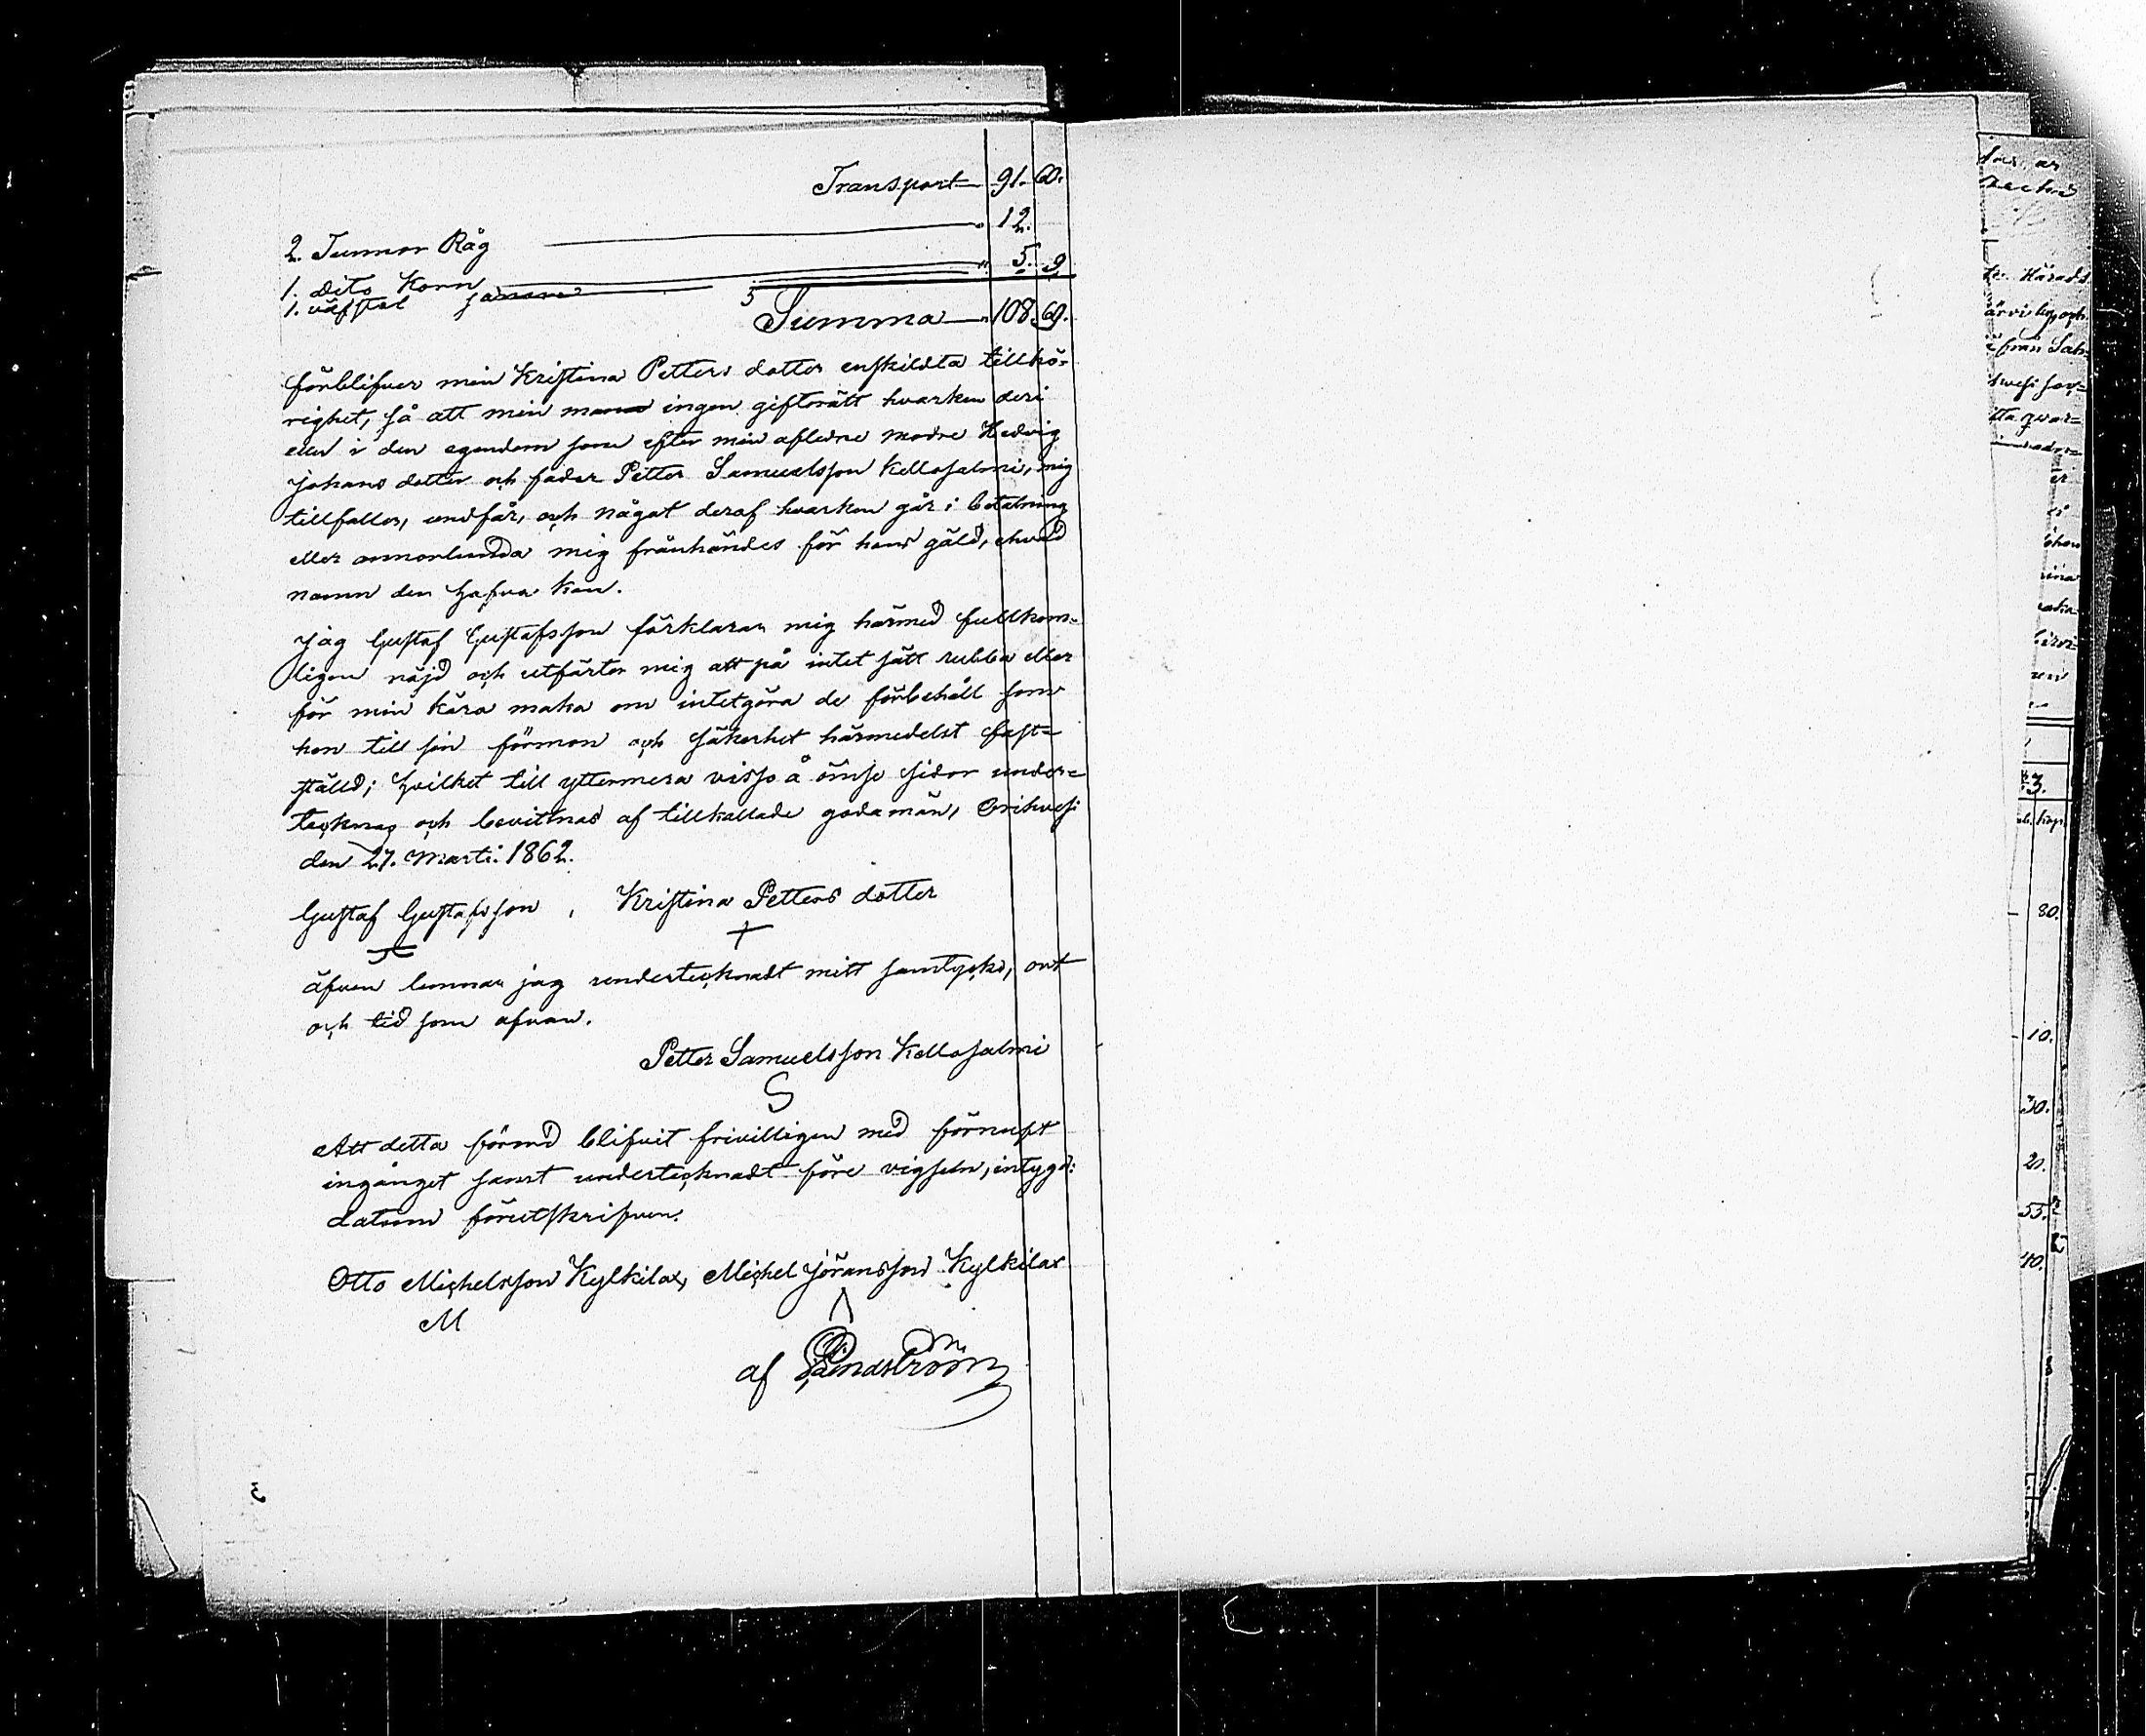 Transport 91. 60.
2. Tunnor Råg 12.
1. dito Korn " 5. 9
1. väfstol
Summa 108. 69.
förblifver min Kristina Petters dotter enskildta tillhö=
righet, så att min man ingen giftorätt hvarken deri
eller i den egendom som efter min afledne modre Hedvig
Johans dotter och fader Petter Samuelsson Kellosalmi, mig
tillfaller, undfår, och något deraf hvarken går i betalning
eller annorlunda mig frånhändes för hans gäld, ehvad
namn den hafva kan.
Jag Gustaf Gustafsson förklarar mig härmed fullkom=
ligen nöjd och utfäster mig att på intet sätt rubba eller
för min kära maka om intetgöra de förbehåll som
hon till sin förmon och säkerhet härmedelst fast=
ställd; hvilket till yttermera visso å ömse sidor under=
tecknas och bevitnas af tillkallade godamän, Orihvesi
den 27. Marti. 1862.
Gustaf Gustafsson, Kristina Petters dotter
äfven lemnar jag undertecknadt mitt samtycke, ort
och tid som ofvan.
Petter Samuelsson Kellosalmi
S
Att detta förord blifvit frivilligen med förnuft
ingånget samt undertecknadt före vigseln, intyga:
datum föreutskrifven.
Otto Michelsson Kylkilax, Michel Jöransson Kylkilax
M Λ
af Lindström
3
Härads
från
3.
kop.
80.
10.
30.
20.
55.
10.